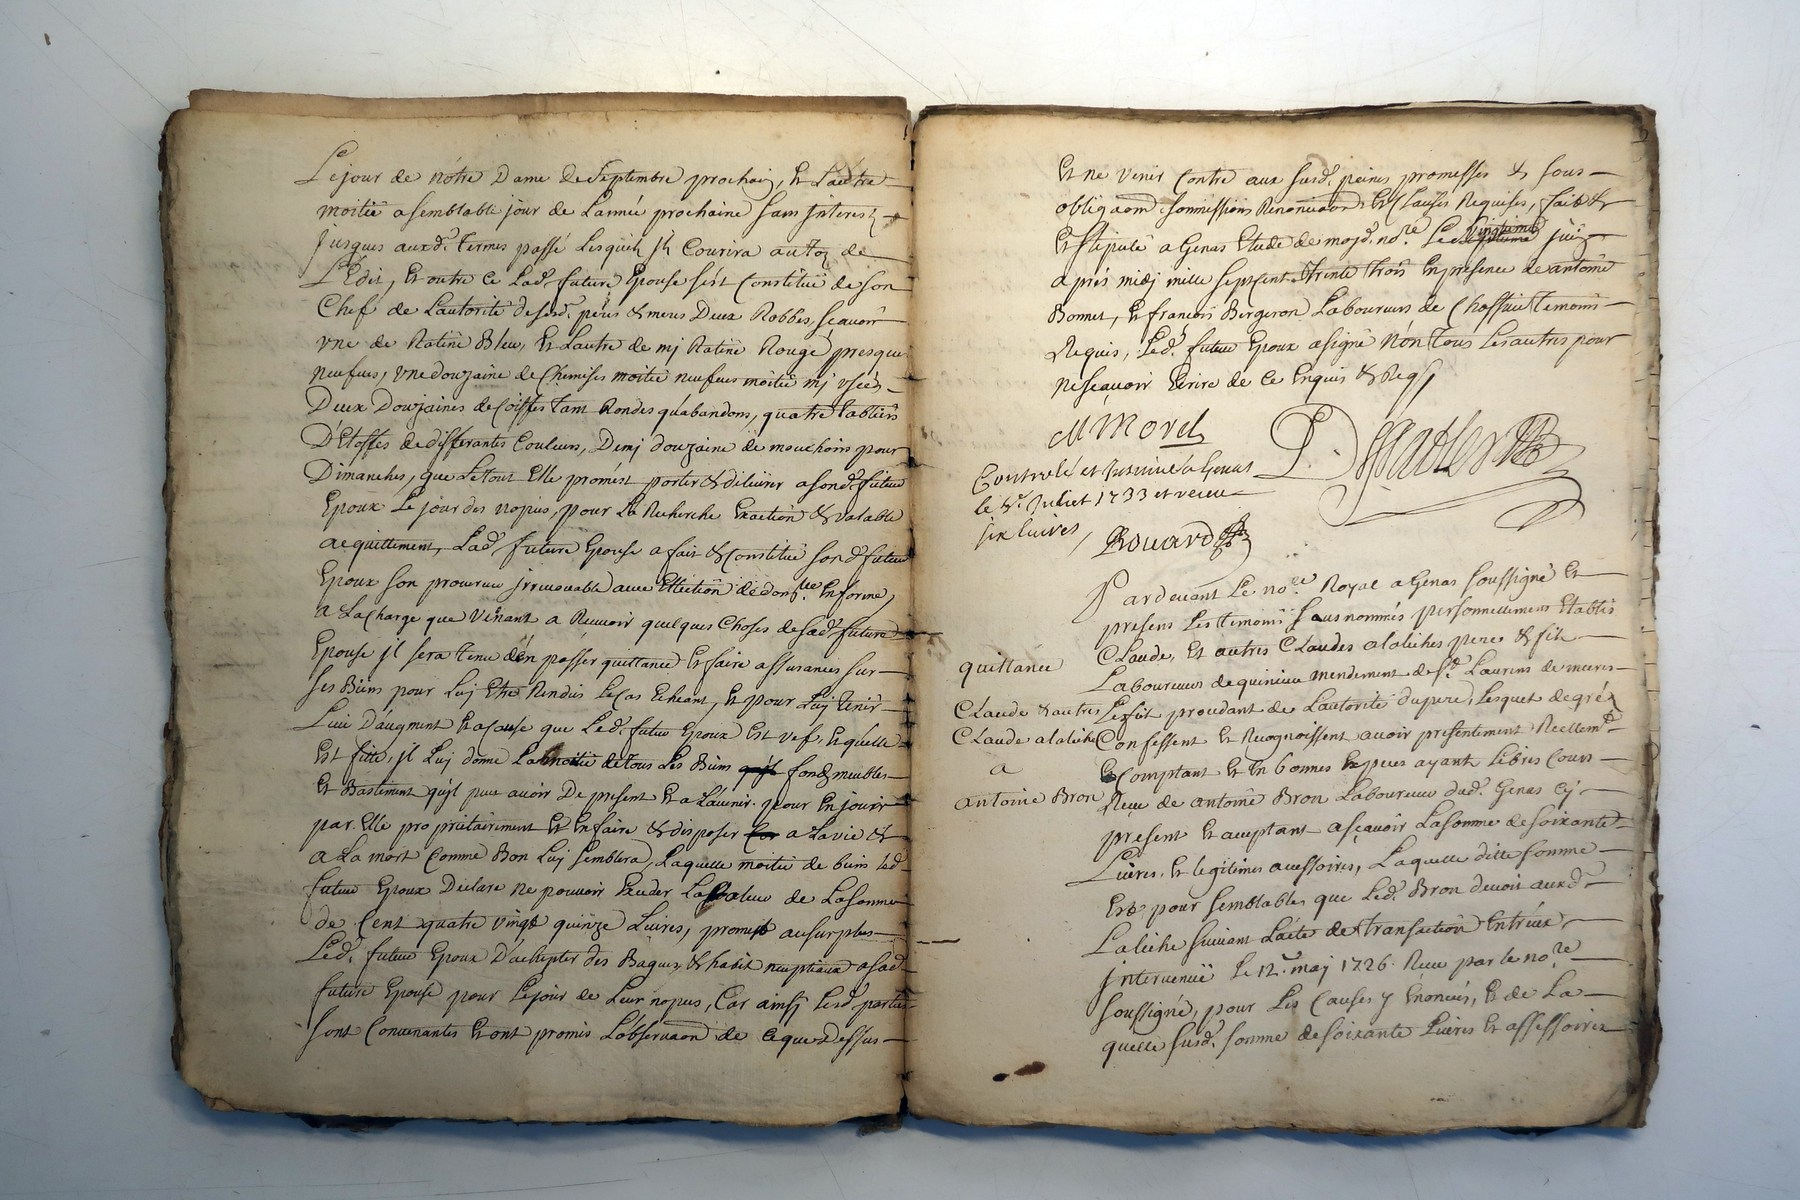 Le jour de nôtre Dame de Septembre prochain, Et Lautre
moitié a semblable jour de L'année prochaine sans Interest
jusques auxd. termes passé Lesquels Jl Courira au toz de
L'Edit, Et outre ce Lad. future Epouse s'est Constitüé de son
Chef de Lautorité desesd. peres & meres Deux Robbes, scavoir
vne de Ratine Bleu, Et Lautre de mj Ratine Rouge presque
neufues, vne douzaine de Chemises moitié neufues moitié mj vseés
Deux Douzaines de Coiffes tant Rondes qu'abandons, quatre tabliers
D'Etoffes de differantes Couleurs, Demj douzaine de mouchoirs pour
Dimanches, que Letout Elle promést porter & délivrer a sond. futur
Epoux Le jour des nopces, pour La Recherche Exaction & valable
acquittement, Lad. future Epouse a fait & Constitüé son d. futur
Epoux son procureur jrrevocable avec Ellection de dom.lle En forme,
a Lacharge que Vénant a Recevoir quelques Choses de sad. future
Epouse jl sera tenu d'én passer quittance Et faire assurances sur
ses Biens pour Luj Etre Rendus Le Cas Echeant, Et pour Luj tenir
Lieu D'augment Et a Cause que Led. futur Epoux Est vef, Et quélle
Est fille, jl Luj donne La moitié de tous Les Biens fonds meubles
Et Bastiment qujl peut avoir De present Et a L'avenir. pour En jouir
par. Elle proprietairement Et En faire & disposer a La vie &
a La mort Comme Bon Luj semblera, Laquelle moitié de biens led.
futur Epoux Declare ne pouvoir Exceder La Valeur de La somme
de Cent quatre vingt quinze Livres, promet au surplus
Led. futur Epoux D'achepter des Bagues & habit nuptiaux a sad.
future Epouse pour Le jour de Leur nopces, Car ainsj Lesd. parties
sont Convenantes Et ont promis L'observaon de ceque Dessus
Et ne venir Contre aux susd. peines promesses & sous
obligaons soumissions Renonciaons Et Clauses Requises, fait &
Et stipulé a Genas Etude de mojd. no.re Le vingtieme juin
apres midj mille septcent trente trois En presence de antoine
Bonnet, Et francois Bergeron Laboureurs de Chassieu temoins
Requis, Led. futur Epoux a signé Nón tous Les autres pour
ne scavoir Ecrire de ce Enquis & Reqs
M Morel
Controlé et Insinué a Genas
le 4.e Juillet 1733 et receu
six livres, Rouard
Pardevant Le no.re Royal a Genas soussigné Et
presens Les temoins sous nommés personnellement Etablis
Claude, Et autres Claudes alaliches pere & fils
Laboureurs de quincieu mendement de St. Laurens de meures
Le fils procedant de Lautorité du pere, Lesquels de gréz
Confessent Et Recognoissent avoir presentement Reellem.t
Et Comptant Et En bonnes Especes ayant Lébres Cours
Receu de antoine Bron Laboureur dud. Genas Cj.
present Et acceptant ascavoir La somme de soixante
Livres, Et legitimes accessoires, Laquelle ditte somme
Est pour semblables que Led. Bron devoit auxd.
Laliche suivant L'acte de transaction Entréux
jntervenüë Le 12.e maj 1726. Receu par le no.re
soussigné, pour Les Causes y Enoncées, Et de La
quelle susd. somme de soixante Livres Et assessoires
quittance
Claude & autres
Claude alaliche
a
antoine Bron